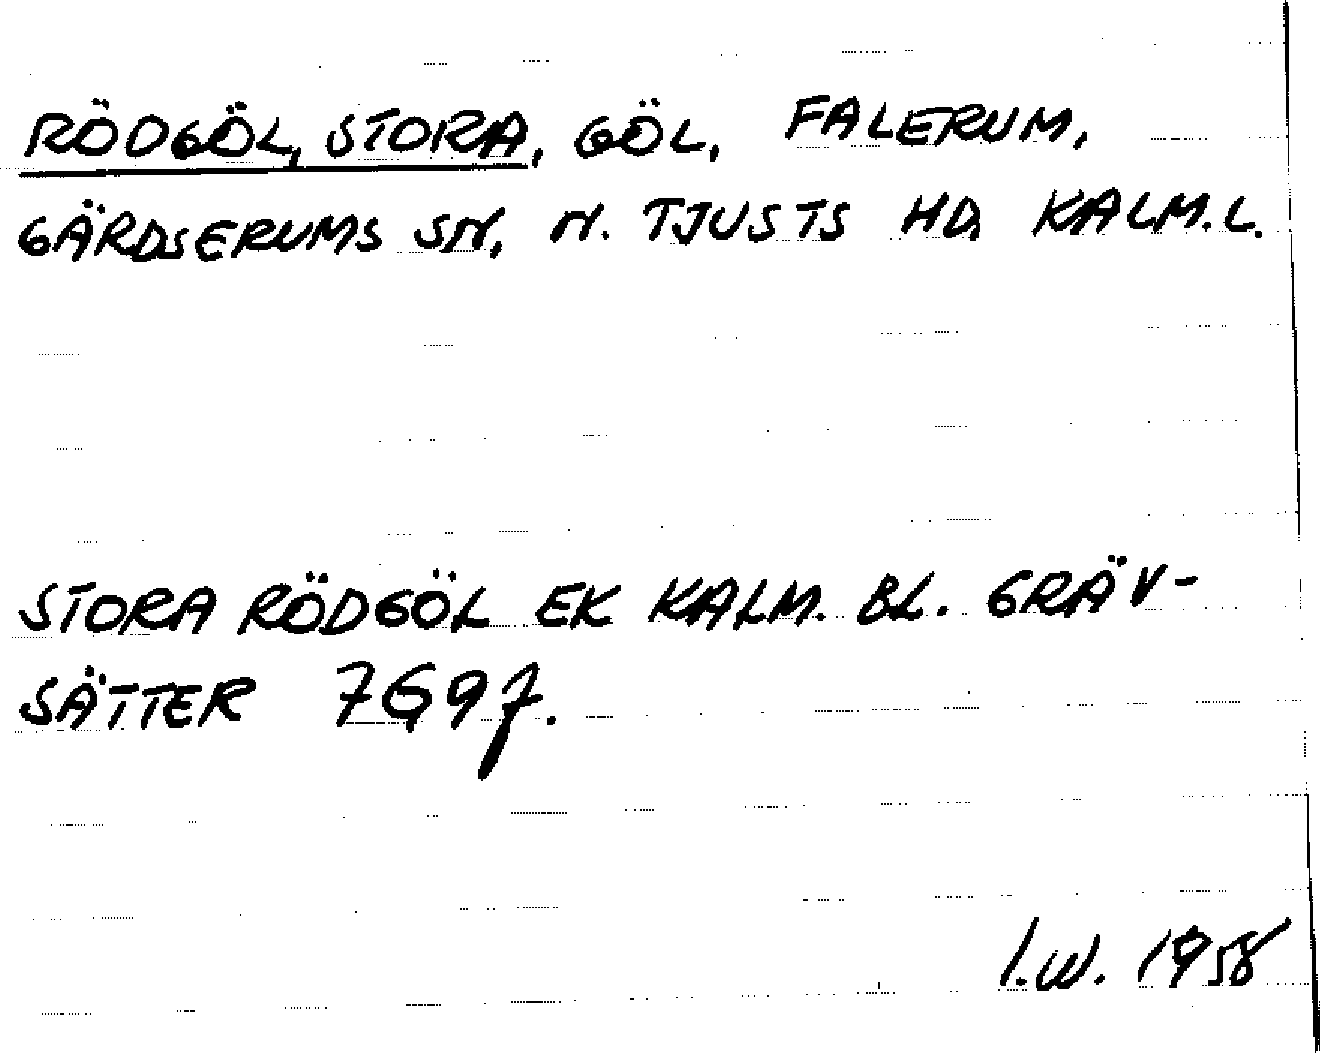 RÖDGÖL, STORA, GÖL, FALERUM,
GÄRDSERUMS SN, N. TJUSTS HD, KALM. L.
STORA RÖDGÖL EK KALM. BL. GRÄV-
SÄTTER 7G9f.
I.W. 1958